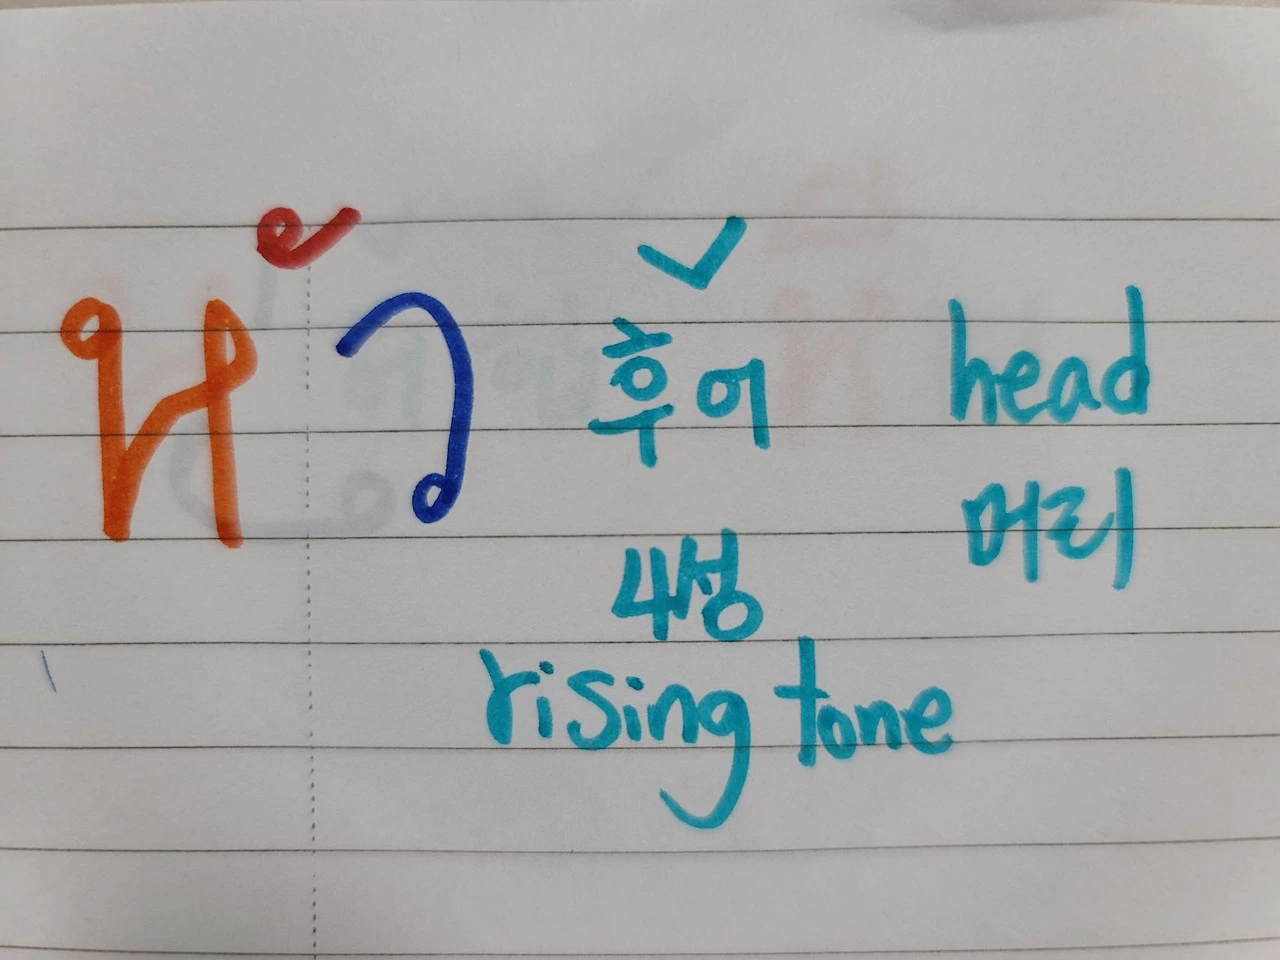 หัว 후어 head
머리
4성
rising tone